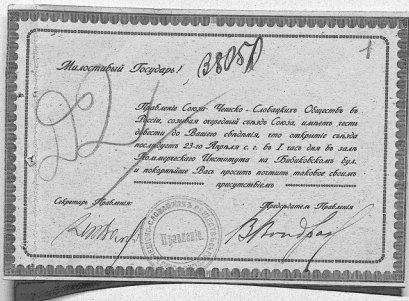 38050
1
Милостивый Государь!
Правленіе Союза Чешско-Словацкихъ Обществъ въ
Россіи, созывая очередной съѣздъ Союза, имѣетъ честь
довести до Вашего свѣдѣнія, что открытіе съѣзда
послѣдуетъ 23-го Апрѣля с. г. въ 1 часъ дня въ залѣ
Коммерческаго Института на Бибиковскомъ бул.
и покорнѣйше Васъ проситъ почтить таковое своимъ
присутствіемъ
Секретарь Правленія:
Предсѣдатель Правленія
Правленіе